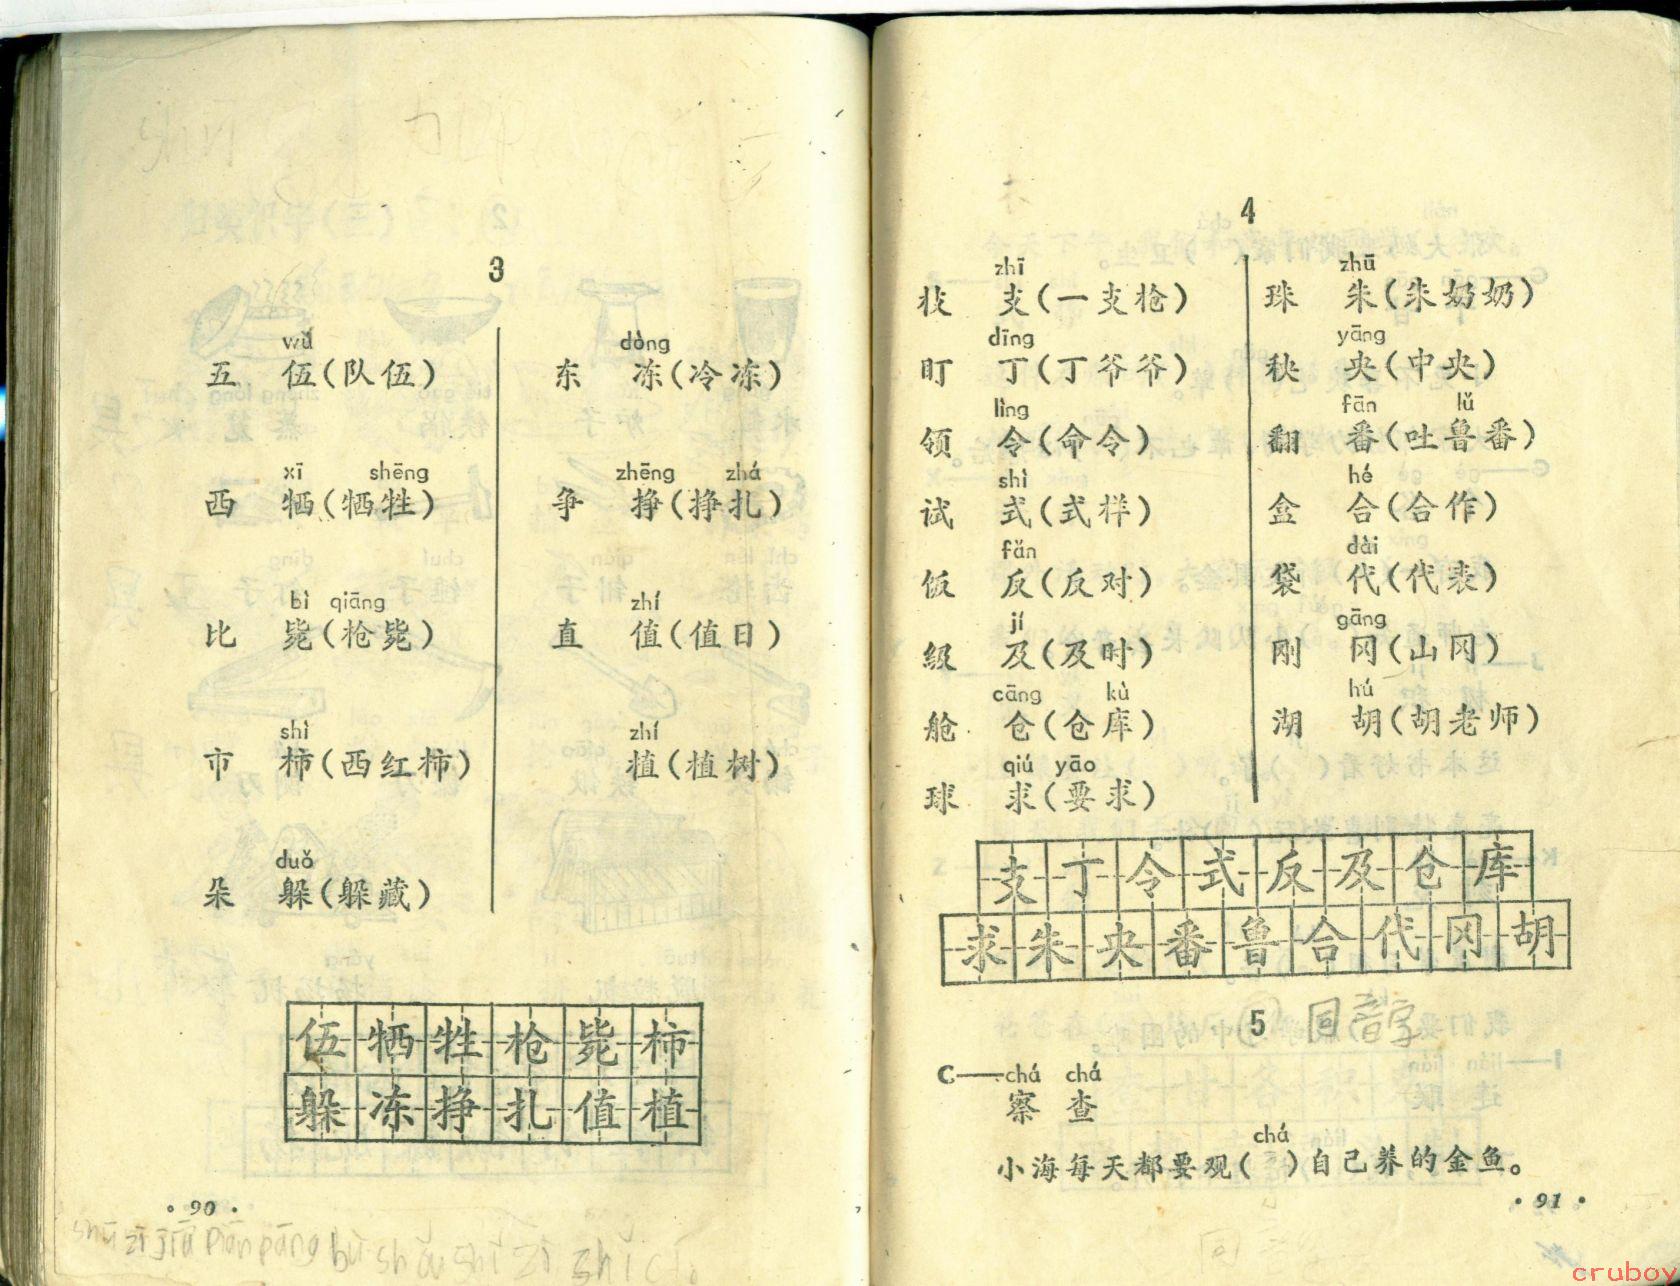 3
wǔ
五 伍(队伍)
xī shēng
西 牺(牺牲)
bì qiāng
比 毙(枪毙)
shì
市 柿(西红柿)
duǒ
朵 躲(躲藏)
dòng
东 冻(冷冻)
zhēng zhá
争 挣(挣扎)
zhí
直 值(值日)
zhí
植(植树)
伍牺牲枪毙柿
躲冻挣扎值植
·90·
4
zhī
枝 支(一支枪)
dīng
盯 丁(丁爷爷)
lìng
领 令(命令)
shì
试 式(式样)
fǎn
饭 反(反对)
jí
级 及(及时)
cāng kù
舱 仓(仓库)
qiú yāo
球 求(要求)
zhū
珠 朱(朱奶奶)
yāng
秧 央(中央)
fān lǔ
翻 番(吐鲁番)
hé
盒 合(合作)
dài
袋 代(代表)
gāng
刚 冈(山冈)
hú
湖 胡(胡老师)
支丁令式反及仓库
求朱央番鲁合代冈胡
5 同音字
C——chá chá
察 查
chá
小海每天都要观( )自己养的金鱼。
·91·
cruboy